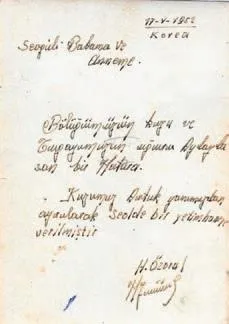 17-V-1952
Korea
Sevgili Babama ve
Anneme.
Bölüğümüzün kuzu ve
Tugayımızın uğuru Aylayla
son bir Hatıra.
Kuzumuz Buruk yanımızdan
ayrılarak Seulde bir yetimhaneye
verilmiştir
H. Özoral